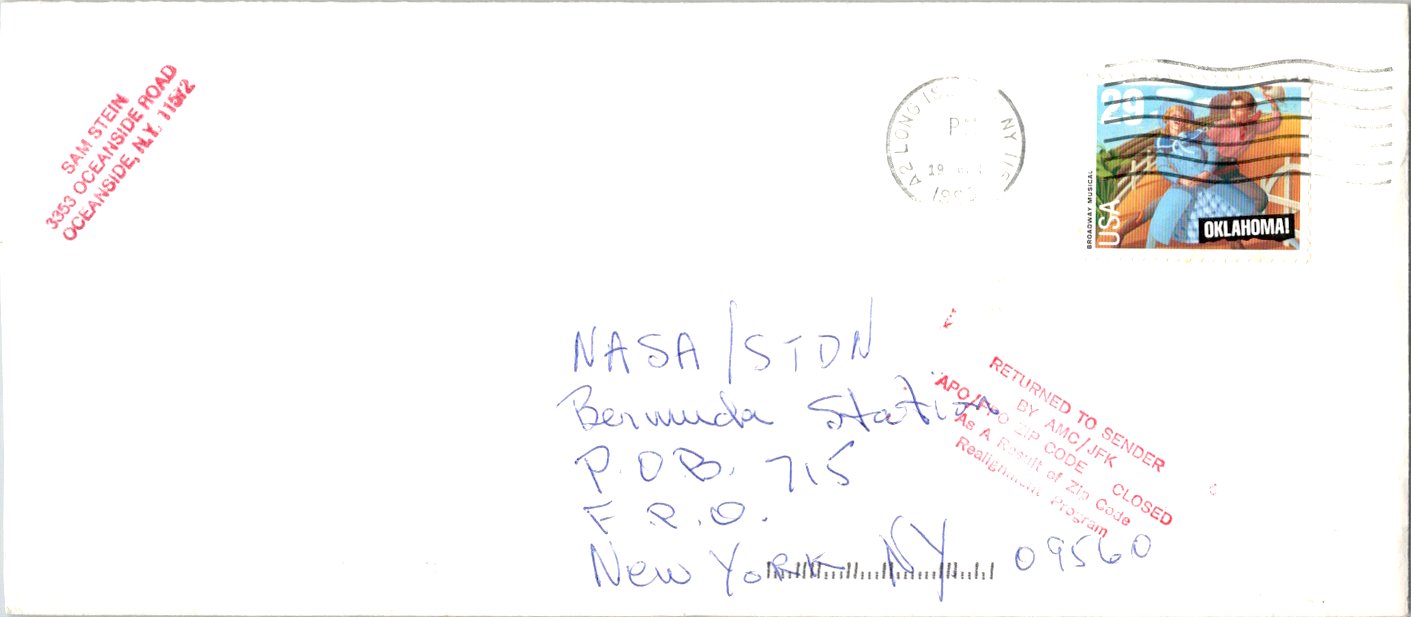 SAM STEIN
3353 OCEANSIDE ROAD
OCEANSIDE, N.Y. 11572
LONG
NY
19
29
BROADWAY MUSICAL
USA
OKLAHOMA!
NASA/STDN
Bermuda Station
P.O.B. 715
F.P.O.
New York NY 09560
RETURNED TO SENDER
BY AMC/JFK
APO/FPO ZIP CODE CLOSED
As A Result of Zip Code
Realignment Program